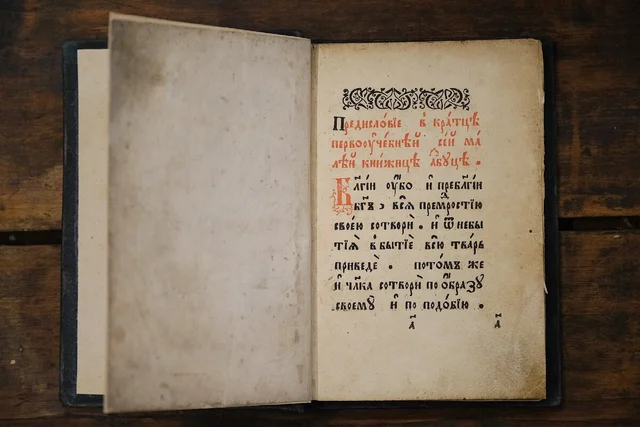 Предисло́вїе в кра́тцѣ
первоꙋче́бнѣй се́й ма́
лѣй кни́жицѣ а҆́збꙋцѣ .
Бл҃гі́й ᲂу҆́бо и҆ пребл҃гі́й
бг҃ъ , всѧ̀ премⷣростїю
свое́ю сотворѝ . и҆ ѿ небы
тїѧ̀ в бытїѐ всю̀ тва́рь
приведѐ . пото́мъ же
и҆ чл҃ка сотворѝ по о҆́бразꙋ
своемꙋ̀ и҆ по подо́бїю .
а҃ а҃